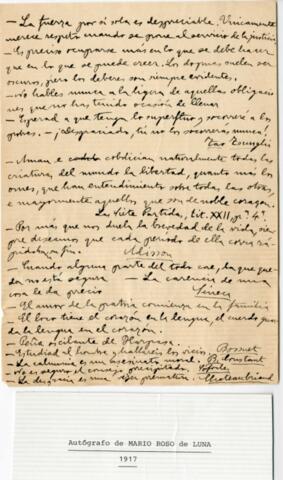 — La fuerza por si sola es despreciable. Unicamente
merece respeto cuando se pone al servicio de la justicia
— Es preciso ocuparse más en lo que se debe hacer
que en lo que se puede creer. Los dogmas suelen ser
oscuros, pero los deberes son siempre evidentes.
— No hables nunca a la ligera de aquellas obligacio
nes que no has tenido ocasión de llenar
— Esperad a que tengan lo superfluo y socorreré a los
pobres. — ¡desgraciado, tú no los socorrerás nunca!
— Aman e codician naturalmente todas las
criaturas del mundo la libertad, quanto más los
omes, que han entendimiento sobre todas las otras,
e mayormente aquellos que son de noble corazon.
La Siete Partida, tit. XXII,
— Por más que nos duela la brevedad de la vida, siem
pre deseamos que cada periodo de ella corra rá
pido a su fin. Adisson
— Cuando alguna parte del todo cae, la que que
da no está segura — La carencia de una
cosa le da precio Seneca
— El amor de la patria comienza en la familia
— El loco tiene el corazón en la lengua, el cuerdo guar
da la lengua en el corazón.
— Peña oscilante de
— Estudiad al hombre, hallareis los vicios. Bossuet
— La calumnia es un asesinato moral. B. Constant
— No es seguro el consejo precipitado. Sofocles
— La desgracia es una vejez prematura. Chateaubriand
Autógrafo de MARIO ROSO de LUNA
1917